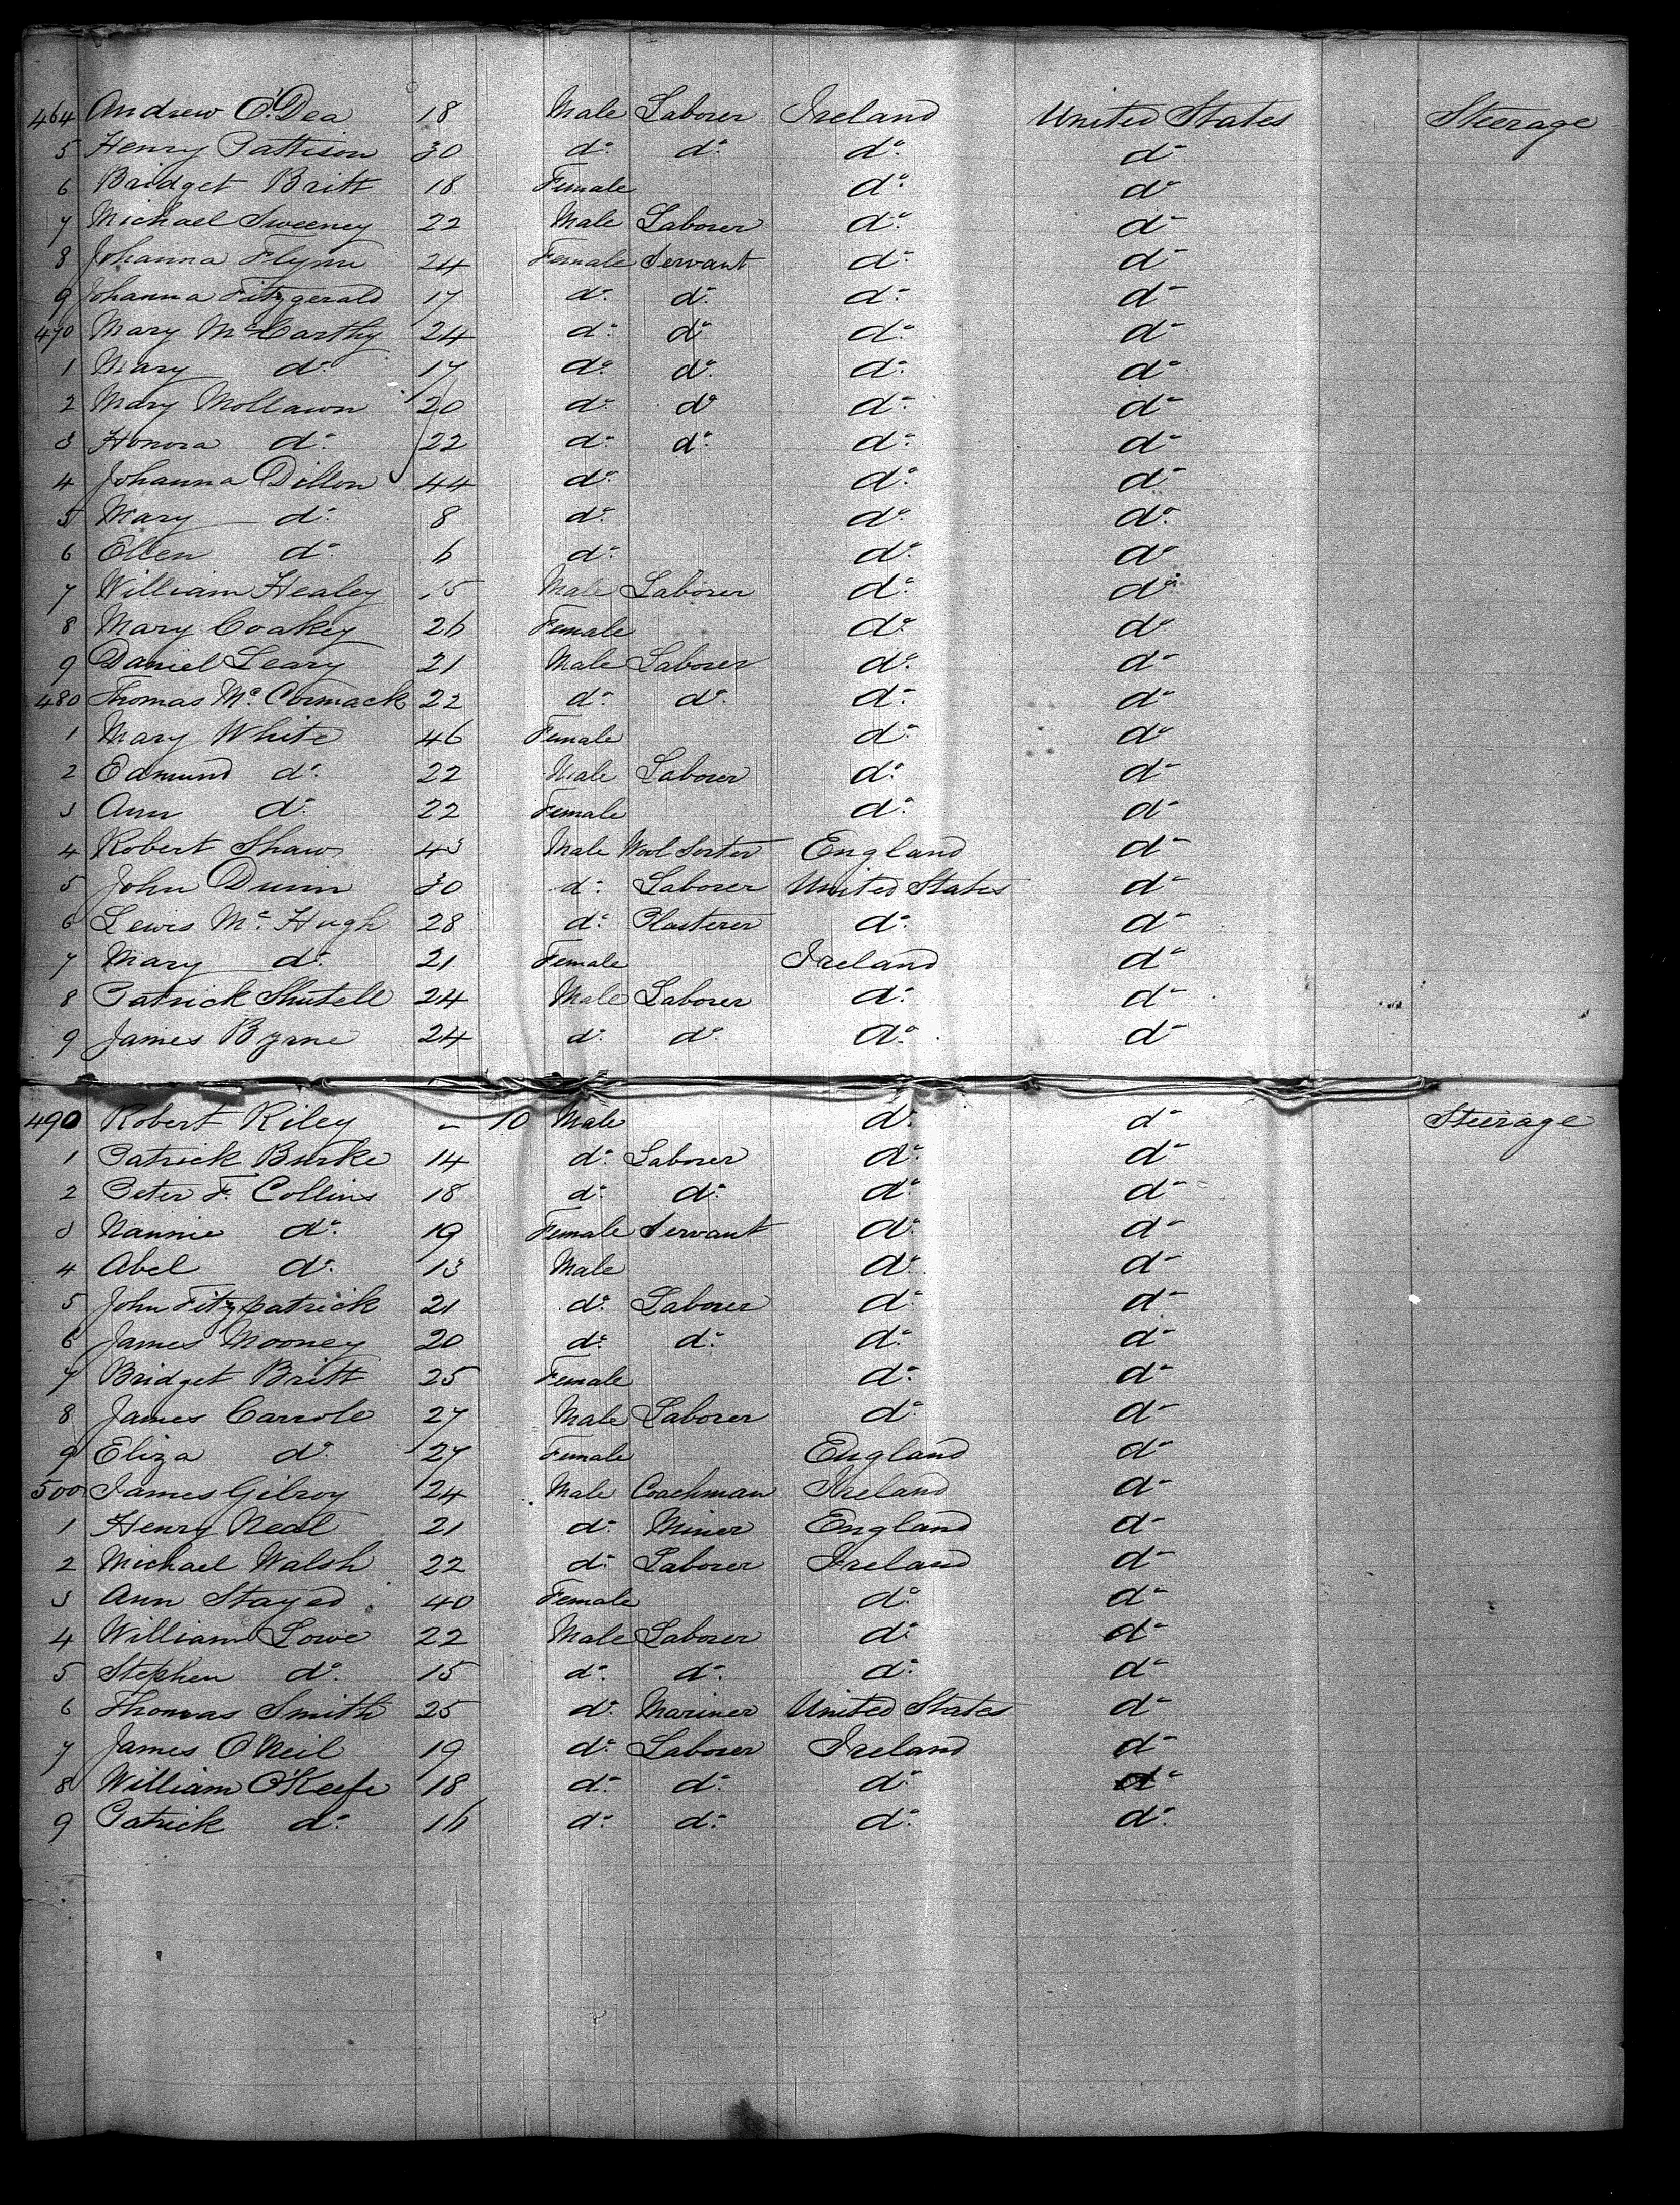 464 Andrew O'Dea 18 Male Laborer Ireland United States Steerage
5 Henry Pattison 30 do do do do
6 Bridget Britt 18 Female do do
7 Michael Sweeney 22 Male Laborer do do
8 Johanna Flynn 24 Female Servant do do
9 Johanna Fitzgerald 17 do do do do
470 Mary McCarthy 24 do do do do
1 Mary do 17 do do do do
2 Mary Mollawn 20 do do do do
3 Honora do 22 do do do do
4 Johanna Dillon 44 do do do
5 Mary do 8 do do do
6 Ellen do 6 do do do
7 William Healey Male Laborer do do
8 Mary Coakey 26 Female do do
9 Daniel Leary 21 Male Laborer do do
480 Thomas McCormack 22 do do do do
1 Mary White 46 Female do do
2 Edmund do 22 Male Laborer do do
3 Ann do 22 Female do do
4 Robert Shaw 43 Male Wool Sorter England do
5 John Dunn 30 do Laborer United States do
6 Lewis McHugh 28 do Plasterer do do
7 Mary do 21 Female Ireland do
8 Patrick Shutell 24 Male Laborer do do
9 James Byrne 24 do do do do
490 Robert Riley - 10 Male do do Steerage
1 Patrick Burke 14 do Laborer do do
2 Peter F. Collins 18 do do do do
3 Nannie do 19 Female Servant do do
4 Abel do 13 Male do do
5 John Fitzpatrick 21 do Laborer do do
6 James Mooney 20 do do do do
7 Bridget Britt 25 Female do do
8 James Carrole 27 Male Laborer do do
9 Eliza do 27 Female England do
500 James Gilroy 24 Male Coachman Ireland do
1 Henry Neal 21 do Miner England do
2 Michael Walsh 22 do Laborer Ireland do
3 Ann Stayed 40 Female do do
4 William Lowe 22 Male Laborer do do
5 Stephen do 15 do do do do
6 Thomas Smith 25 do Mariner United States do
7 James O'Neil 19 do Laborer Ireland do
8 William O'Keefe 18 do do do do
9 Patrick do 16 do do do do